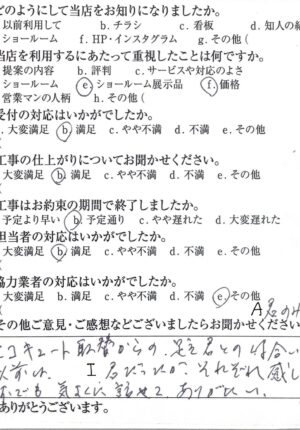 どのようにして当店をお知りになりましたか。
以前利用して b. チラシ c. 看板 d. 知人の紹
ショールーム f. HP・インスタグラム g. その他 (
当店を利用するにあたって重視したことは何ですか。
提案の内容 b. 評判 c. サービスや対応のよさ
ショールーム e. ショールーム展示品 f. 価格
営業マンの人柄 h. その他 (
受付の対応はいかがでしたか。
大変満足 b. 満足 c. やや不満 d. 不満 e. その他
(
工事の仕上がりについてお聞かせください。
大変満足 b. 満足 c. やや不満 d. 不満 e. その他
(
工事はお約束の期間で終了しましたか。
予定より早い b. 予定通り c. やや遅れた d. 大変遅れた
担当者の対応はいかがでしたか。
大変満足 b. 満足 c. やや不満 d. 不満 e. その他
(
協力業者の対応はいかがでしたか。
大変満足 b. 満足 c. やや不満 d. 不満 e. その他
A君のみ
その他ご意見・ご感想などございましたらお聞かせください
エコキュート取替からの
以前は、I君だったが、それぞれ感じ
気よく話せて、ありがたい。
ありがとうございます。